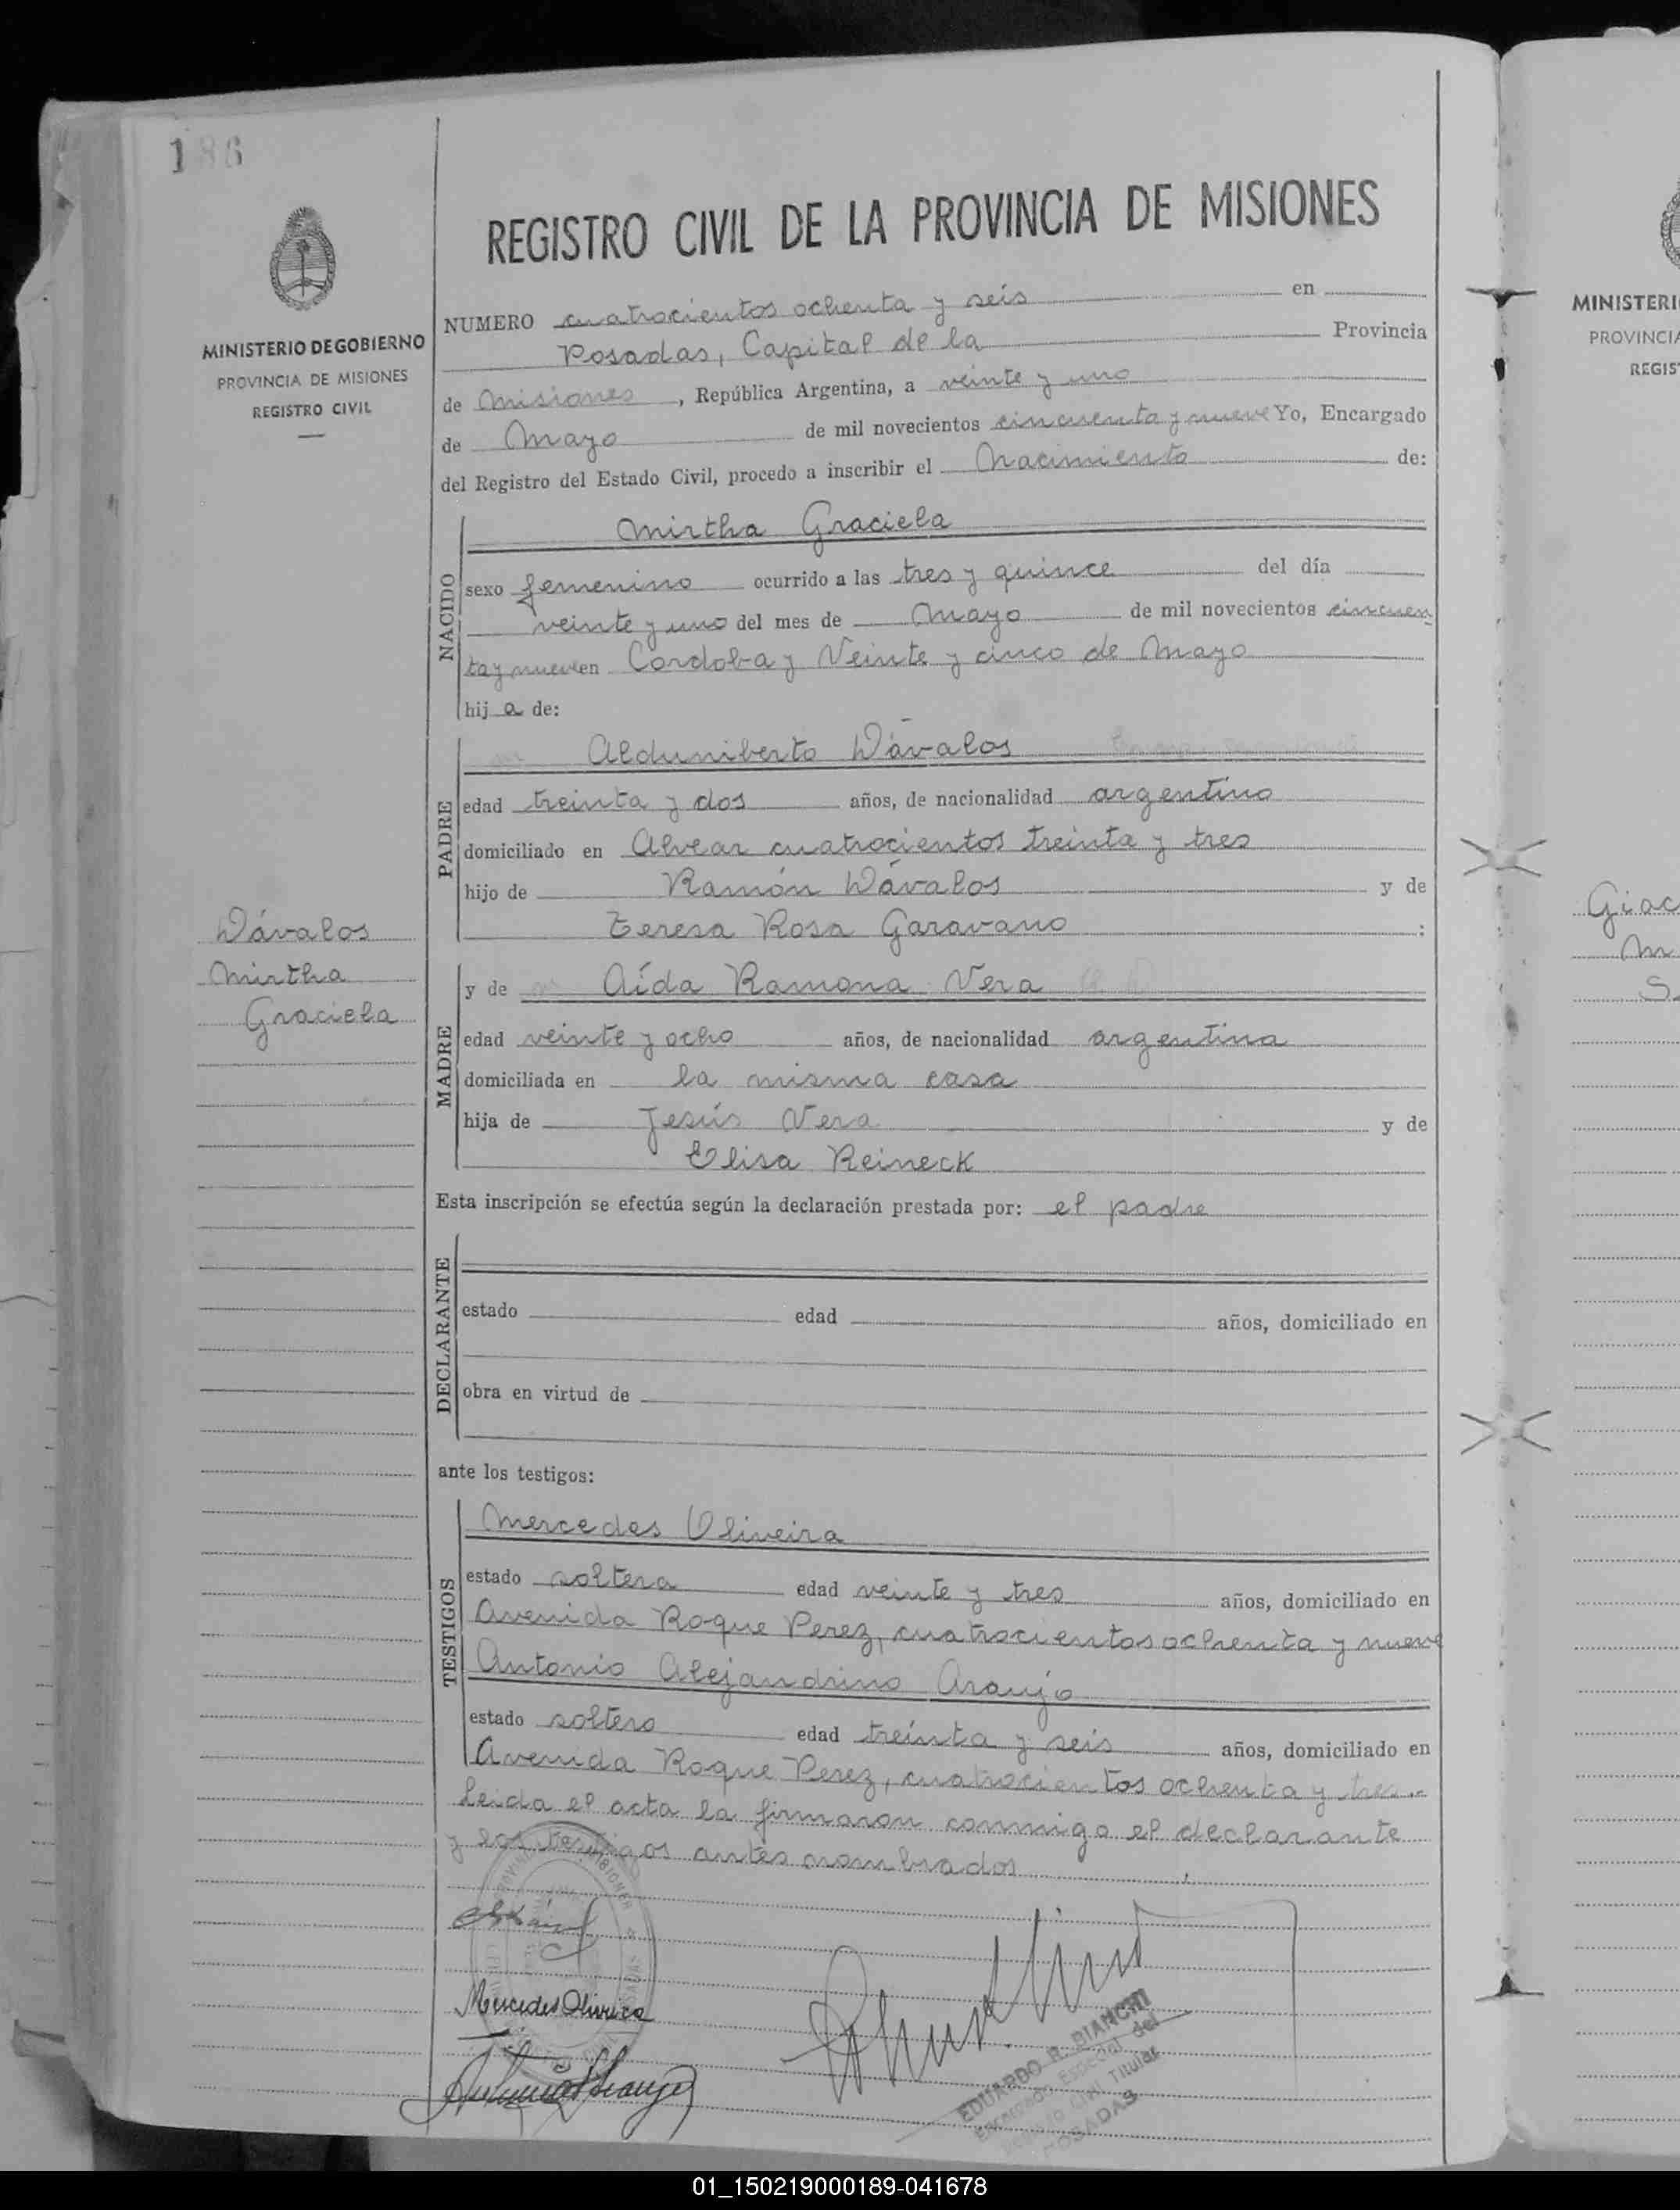 186
MINISTERIO DE GOBIERNO
PROVINCIA DE MISIONES
REGISTRO CIVIL
REGISTRO CIVIL DE LA PROVINCIA DE MISIONES
NUMERO cuatrocientos ochenta y seis en
Posadas, Capital de la Provincia
de Misiones, República Argentina, a veinte y uno
de Mayo de mil novecientos cincuenta y nueve Yo, Encargado
del Registro del Estado Civil, procedo a inscribir el Nacimiento de:
NACIDO
Mirtha Graciela
sexo femenino ocurrido a las tres y quince del día
veinte y uno del mes de Mayo de mil novecientos cincuen
ta y nueve en Cordoba y Veinte y cinco de Mayo
hij a de:
PADRE
Alduniberto Dávalos
edad treinta y dos años, de nacionalidad argentino
domiciliado en Alvear cuatrocientos treinta y tres
hijo de Ramón Dávalos y de
Teresa Rosa Garavano :
Dávalos
Mirtha
Graciela
MADRE
y de Aída Ramona Vera
edad veinte y ocho años, de nacionalidad argentina
domiciliada en la misma casa
hija de Jesús Vera y de
Elisa Reineck
Esta inscripción se efectúa según la declaración prestada por: el padre
DECLARANTE
estado edad años, domiciliado en
obra en virtud de
ante los testigos:
TESTIGOS
Mercedes Oliveira
estado soltera edad veinte y tres años, domiciliado en
Avenida Roque Perez, cuatrocientos ochenta y nueve
Antonio Alejandrino Araujo
estado soltero edad treinta y seis años, domiciliado en
Avenida Roque Perez, cuatrocientos ochenta y tres.-
Leida el acta la firmaron conmigo el declarante
y los testigos antes nombrados
Mercedes Oliveira
EDUARDO R. BIANCHI
Encargado Especial del
Registro Civil Titular
POSADAS
MINISTERI
PROVINCIA
REGIS
Giac
M
S
01_150219000189-041678